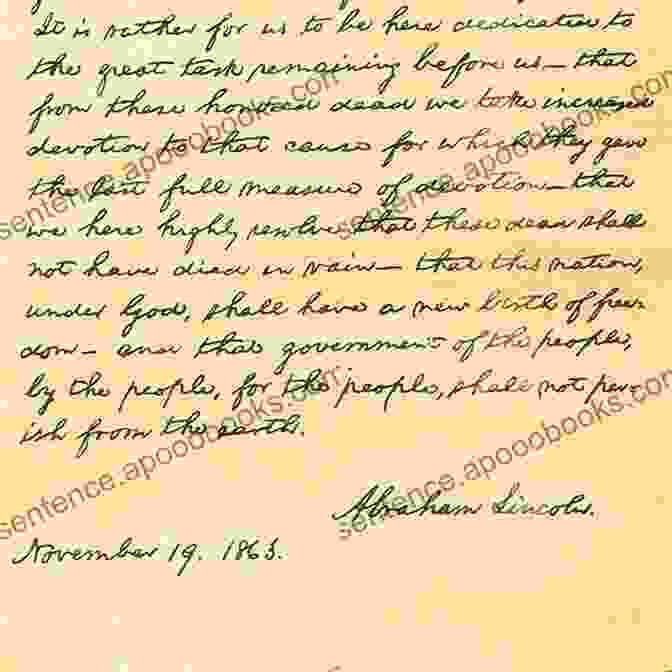 It is rather for us to be here dedicated to
the great task remaining before us — that
from these honored dead we take increased
devotion to that cause for which they gave
the last full measure of devotion — that
we here highly resolve that these dead shall
not have died in vain — that this nation,
under God, shall have a new birth of free-
dom — and that government of the people,
by the people, for the people, shall not per-
ish from the earth.
Abraham Lincoln.
November 19. 1863.
sentence.apooobooks.com
sentence.apooobooks.com
sentence.apooobooks.com
sentence.apooobooks.com